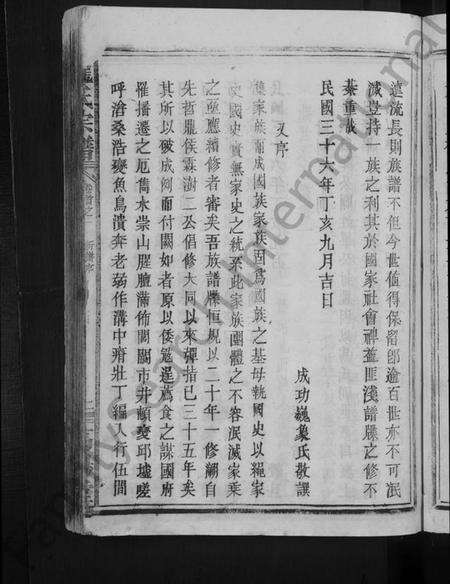 遠流長則族譜不但今世值得保留卽逾百世亦不可泯
減豈持一族之利其於國家社會裨益匪淺譜牒之修不
綦重歟
民國三十六年丁亥九月吉日
成功巍象氏敬譔
又序
積家族而成國族家族固爲國族之基母執國史以繩家
史國史實無家史之統系此家族團體之不容泯滅家乘
之亟應續修者審矣吾族譜牒恒規以二十年一修溯自
先哲龍侯霖澍二公倡修大同以來彈指已三十五年矣
其所以破成例而付闕如者原以倭寇逞蠶食之謀國府
罹播遷之厄雋水崇山腥膻滿佈闤闠市井頓變邱墟嗟
呼滄桑浩變魚鳥潰奔老弱作溝中瘠壯丁編入行伍間
氏宗譜
卷首之一
新譜序